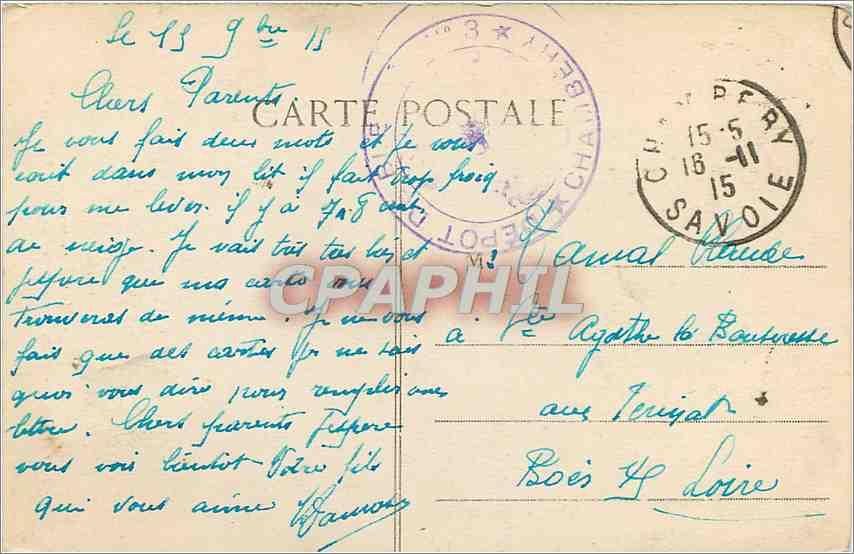 Le 15 9bre 15
Chers Parents
CARTE POSTALE
Je vous fais deux mots et Je vous
écrit dans mon lit il fait trop froid
pour me lever. il y à 7 à 8 cent
de neige. Je vais très très bien et
J'espère que ma carte vous
Trouveras de même. Je ne vous
fais que des cartes Je ne sais
quoi vous dire pour remplir une
lettre. Chers parents J'espère
vous voir bientôt Votre fils
qui vous aime
DEPOT CHAMBERY
CHAMBERY
15-5
16-11
15
SAVOIE
CPAPHIL
M. Claude
à Ste Agathe la Bouteresse
par
Boën Loire